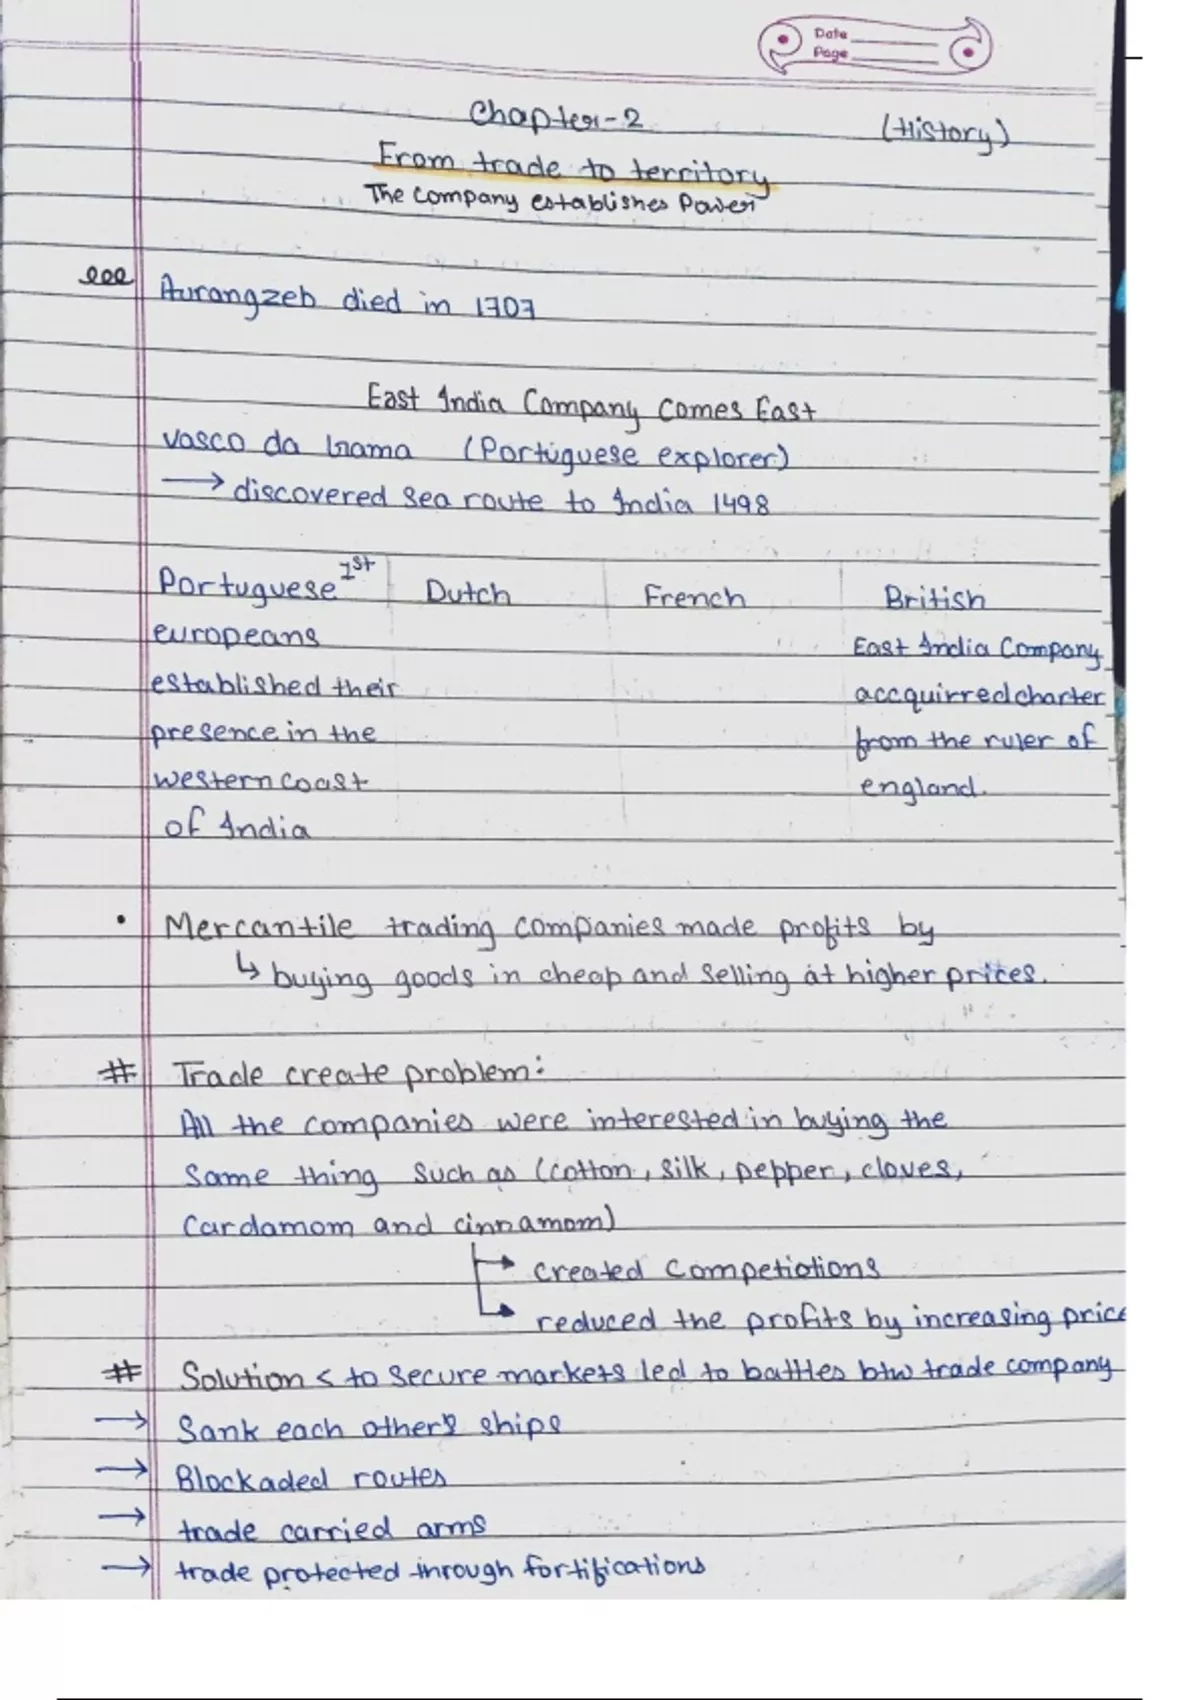 Date
Page
Chapter-2 (History)
From trade to territory
The Company establishes Power
Aurangzeb died in 1707
East India Company Comes East
Vasco da Gama (Portuguese explorer)
→ discovered Sea route to India 1498
Portuguese 1st Dutch French British
europeans East India Company
established their accquirred charter
presence in the from the ruler of
western coast england.
of India
• Mercantile trading companies made profits by
↳ buying goods in cheap and Selling at higher prices.
# Trade create problem:
All the companies were interested in buying the
Same thing Such as (cotton, silk, pepper, cloves,
Cardamom and cinnamom)
→ created Competiotions
→ reduced the profits by increasing price
# Solution < to secure markets led to battles btw trade company
→ Sank each other's ships
→ Blockaded routes
→ trade carried arms
→ trade protected through fortifications